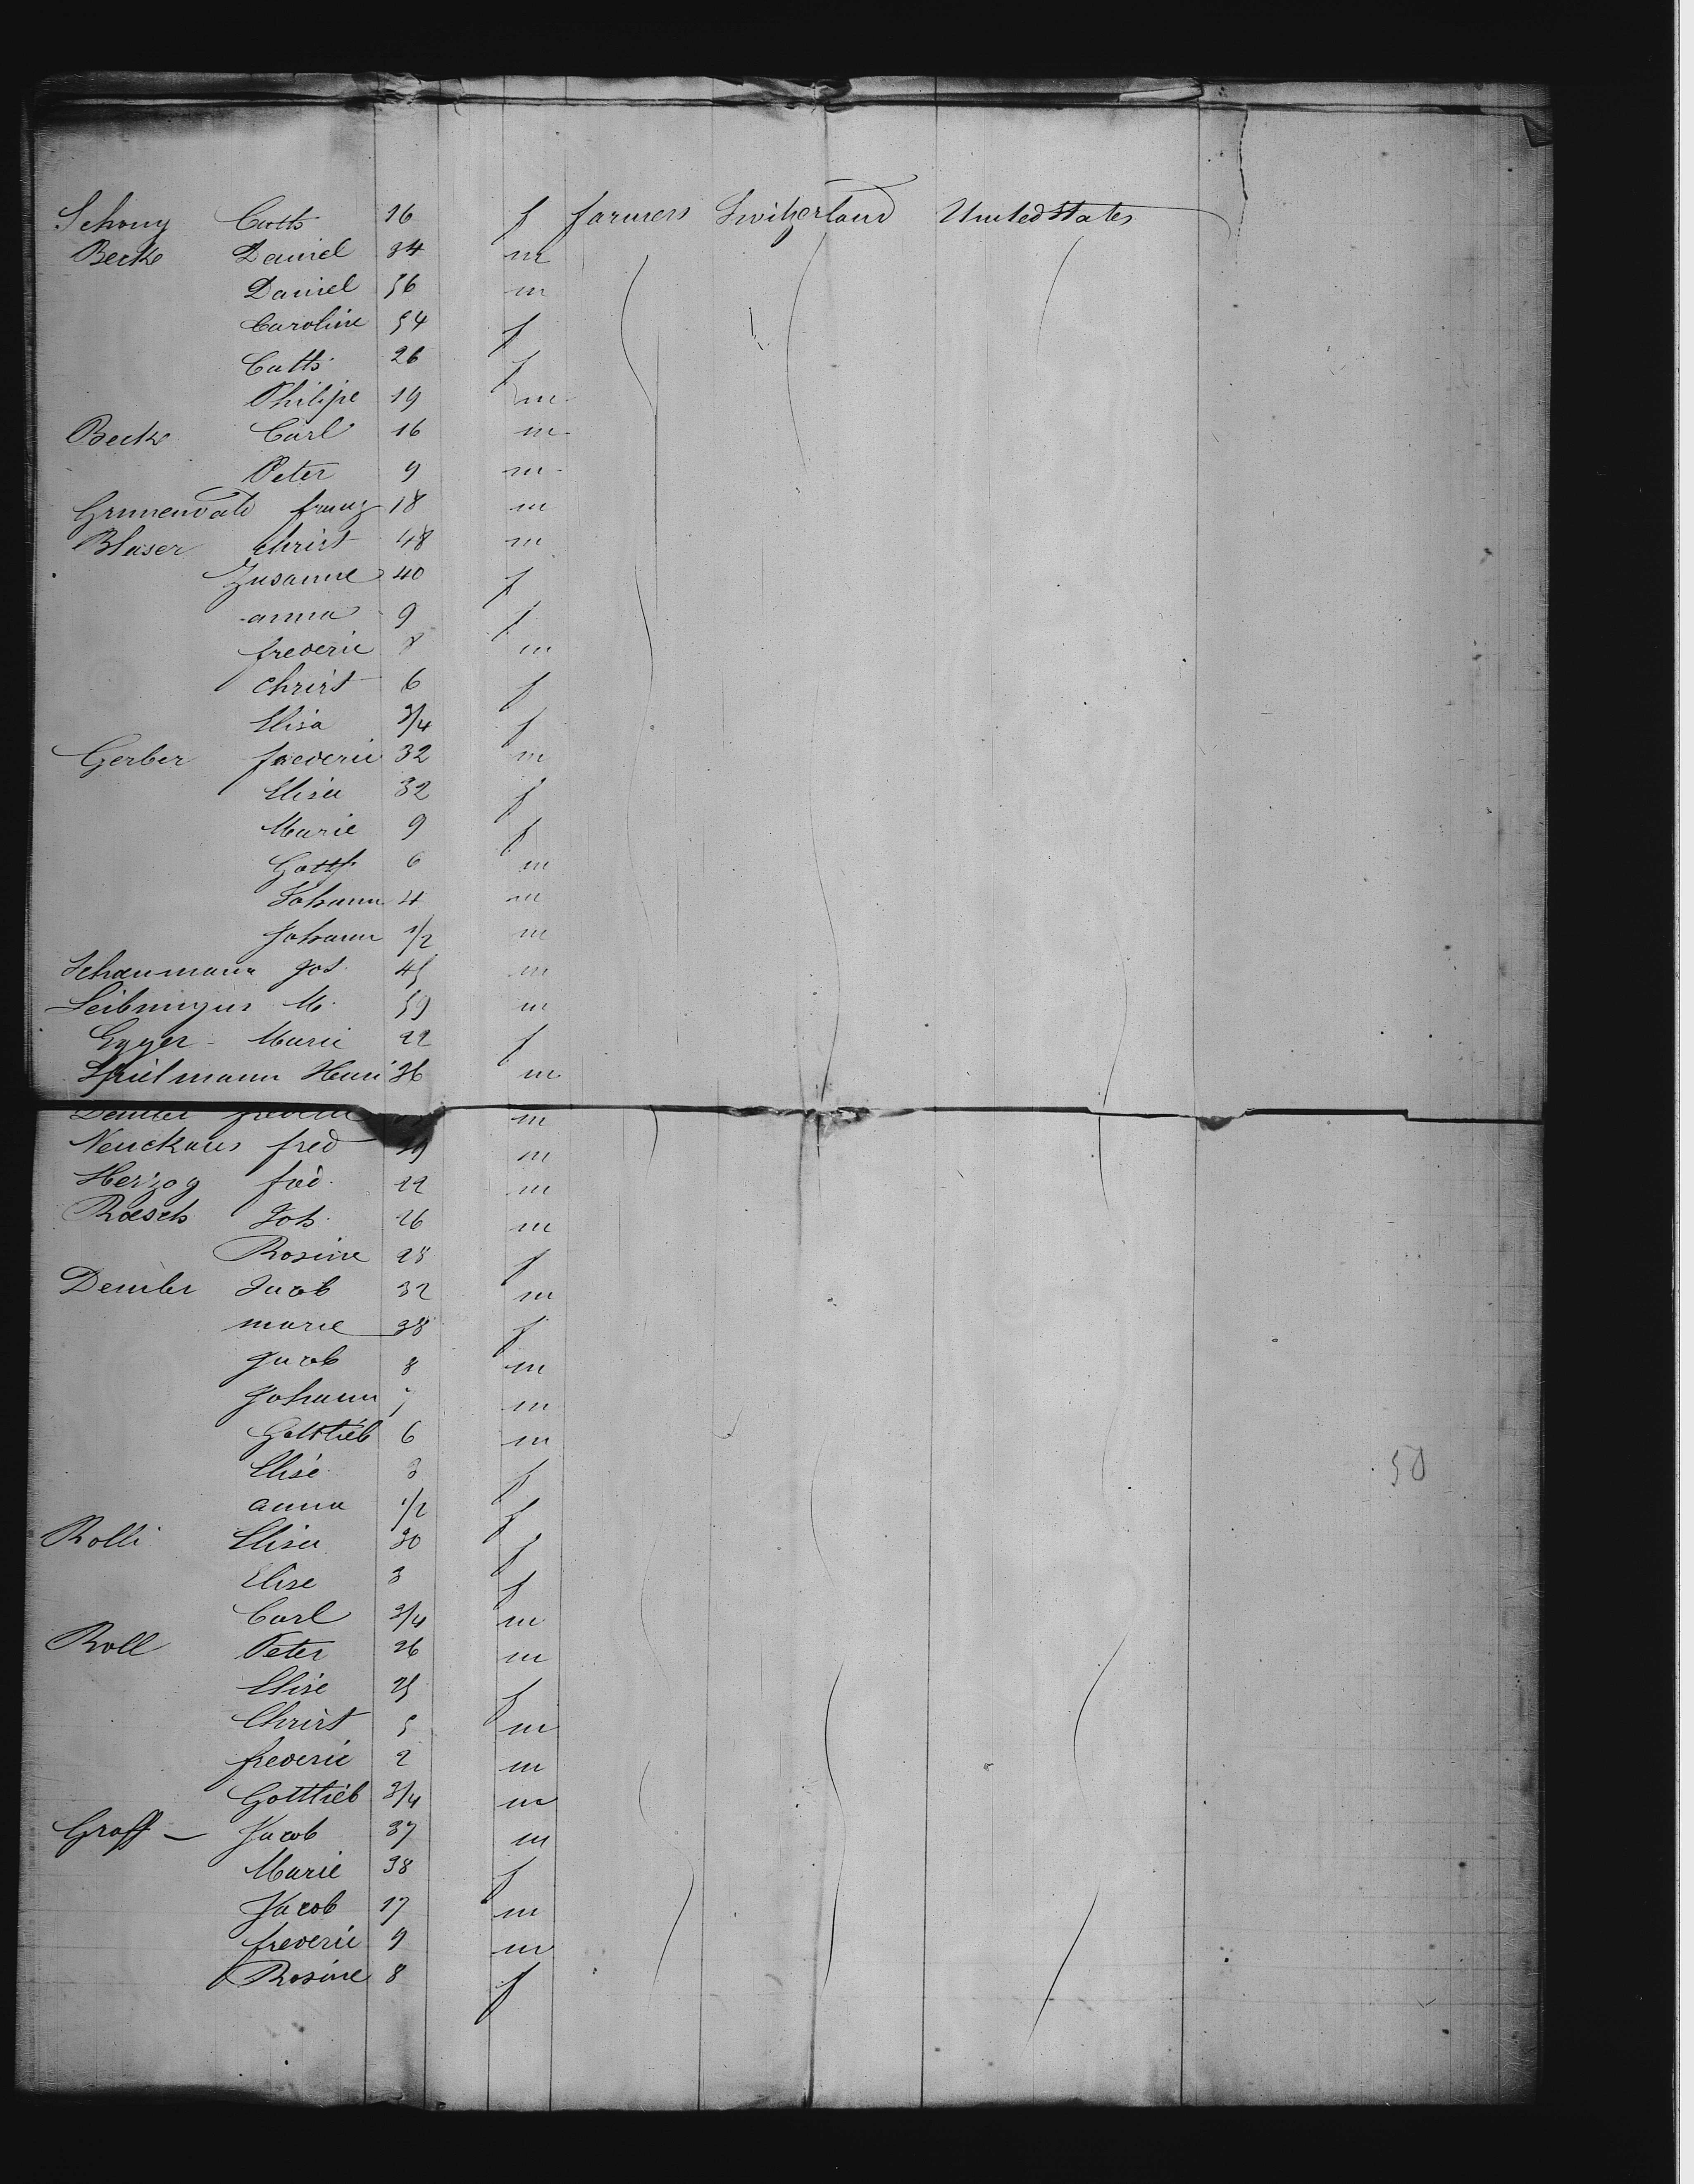 Schony Cath 16 f farmers Switzerland United States
Beck Daniel 34 m
Daniel 56 m
Caroline 54 f
Cath 26 f
Philipe 19 m
Beck Carl 16 m
Peter 9 m
Grunenvald franz 18 m
Blaser christ 48 m
Zusanne 40 f
anna 9 f
frederic 8 m
christ 6 f
Elisa 3/4 f
Gerber frederic 32 m
Elisa 32 f
Marie 9 f
Gottf 6 m
Johann 4 m
Johann 1/2 m
Schaumann Jos. 45 m
M. 59 m
Egger Marie 22 f
Spielmann Henri 36 m
m
fred 29 m
Herzog fréd. 22 m
Raesch Joh. 26 m
Rosine 28 f
Demler Jacob 32 m
marie 38 f
Jacob 8 m
Johann 7 m
Gottlieb 6 m
Elise 3 f
anna 1/2 f
50
Rolli Elisa 30 f
Elise 3 f
Carl 3/4 m
Roll Peter 26 m
Elise 25 f
Christ 5 m
frederic 2 m
Gottlieb 3/4 m
Graff — Jacob 37 m
Marie 38 f
Jacob 17 m
frederic 9 m
Rosine 8 f